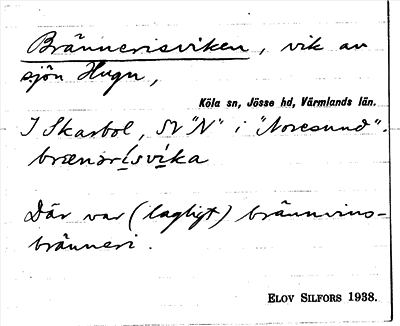 Brännerisviken, vik av
sjön Hugn,
Köla sn, Jösse hd, Värmlands län.
I Skarbol, SV "N" i "Noresund".
brænərísvíka
Där var (lagligt) brännvins-
bränneri.
ELOV SILFORS 1938.